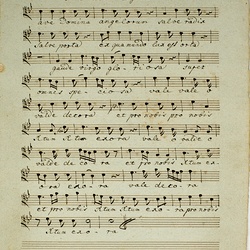 ave Domina angelorum Salve radix
Salve porta ex qua mundo lux est orta
gaude virgo glo ri o sa super
omnes spe ci o sa vale vale o
valde decora et pro nobis pro nobis
Xtum Xtum exora vale o vale o
valde de co ra et pro nobis Xtum ex
o ra exo ra vale deco ra
et pro nobis Xtum Xtum exo ra pro nobis
Xtum exo ra